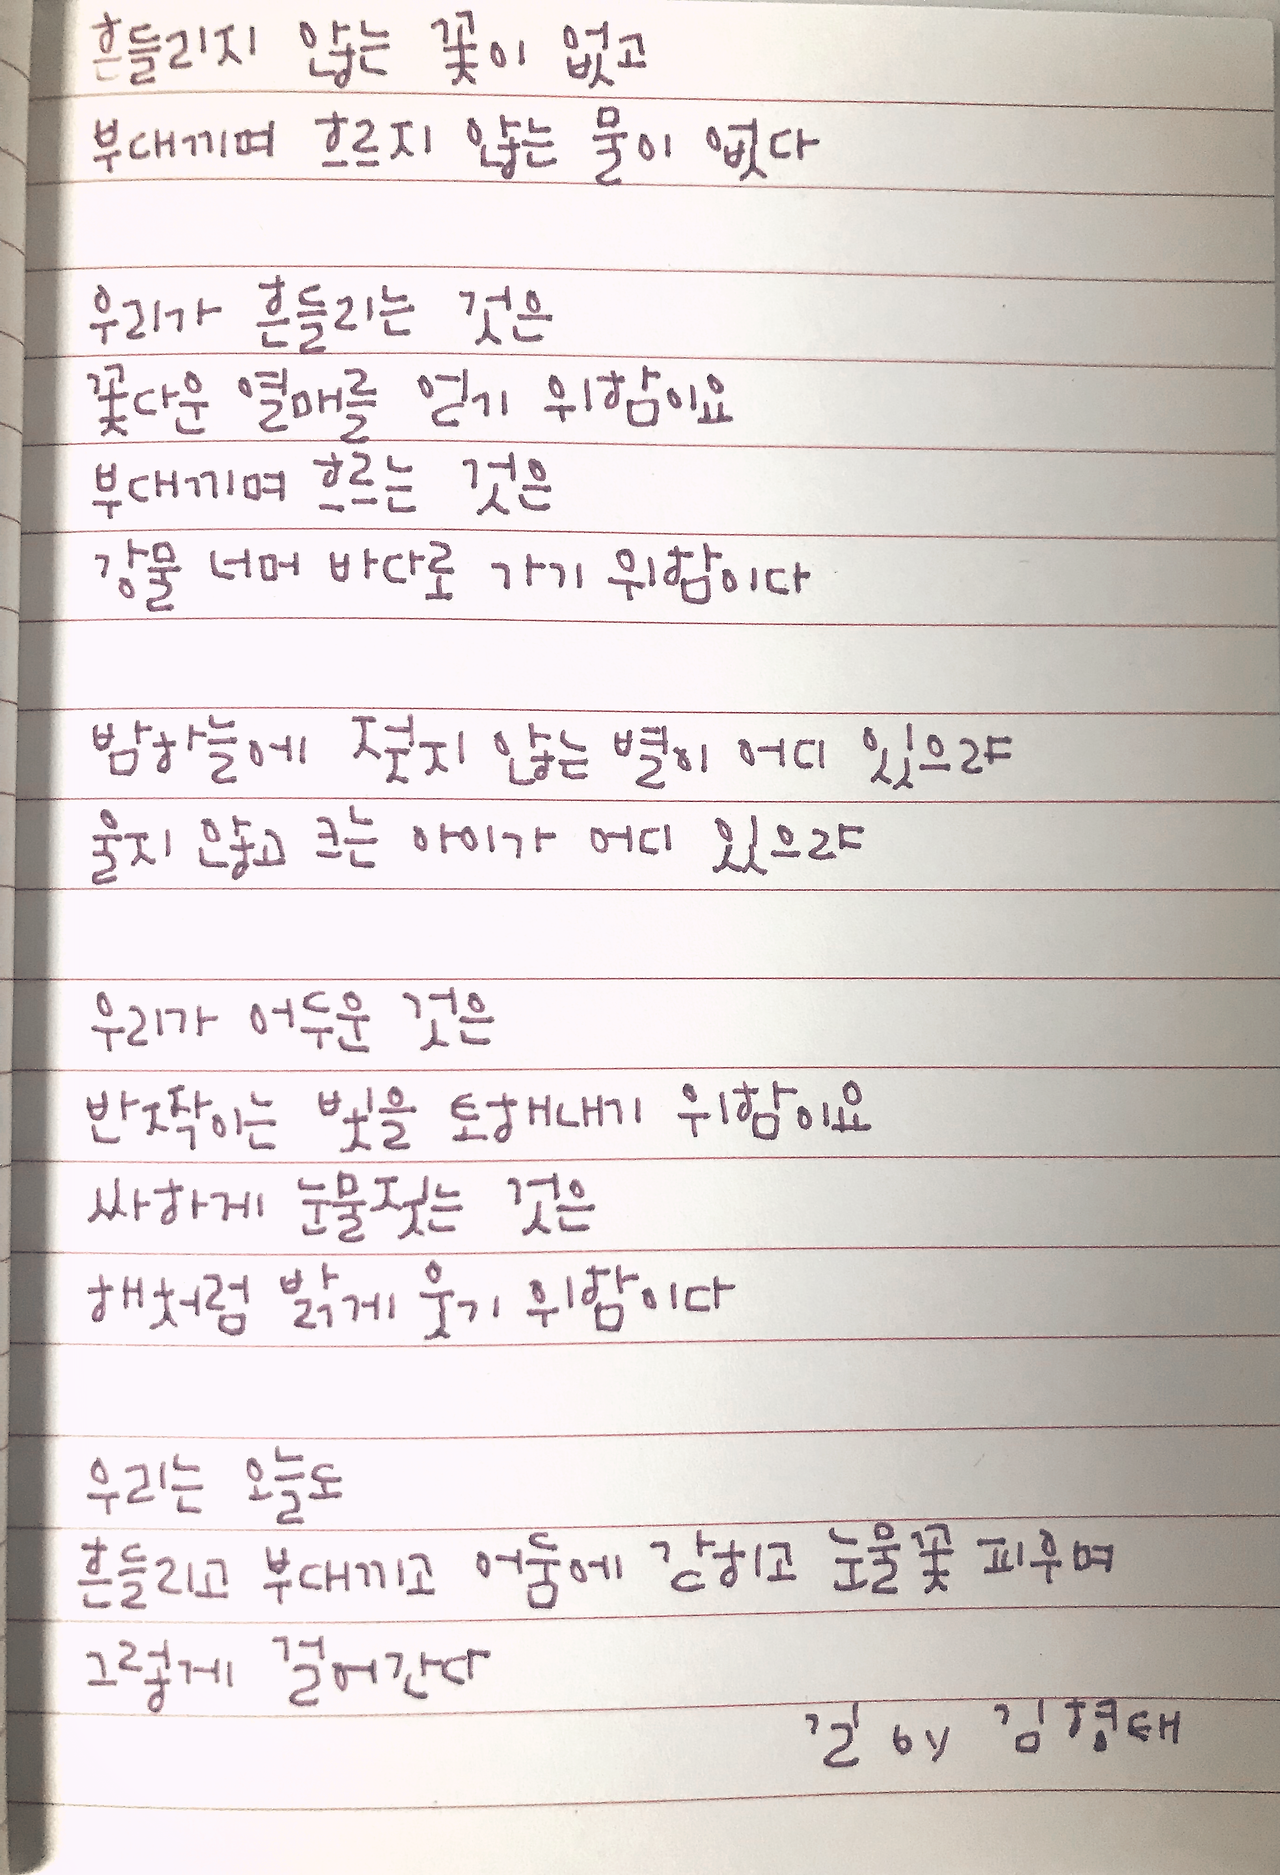 흔들리지 않는 꽃이 없고
부대끼며 흐르지 않는 물이 없다
우리가 흔들리는 것은
꽃다운 열매를 얻기 위함이요
부대끼며 흐르는 것은
강물 너머 바다로 가기 위함이다
밤하늘에 젖지 않는 별이 어디 있으랴
울지 않고 크는 아이가 어디 있으랴
우리가 어두운 것은
반짝이는 빛을 토해내기 위함이요
싸하게 눈물젖는 것은
해처럼 밝게 웃기 위함이다
우리는 오늘도
흔들리고 부대끼고 어둠에 갇히고 눈물꽃 피우며
그렇게 걸어간다
길 by 김형태